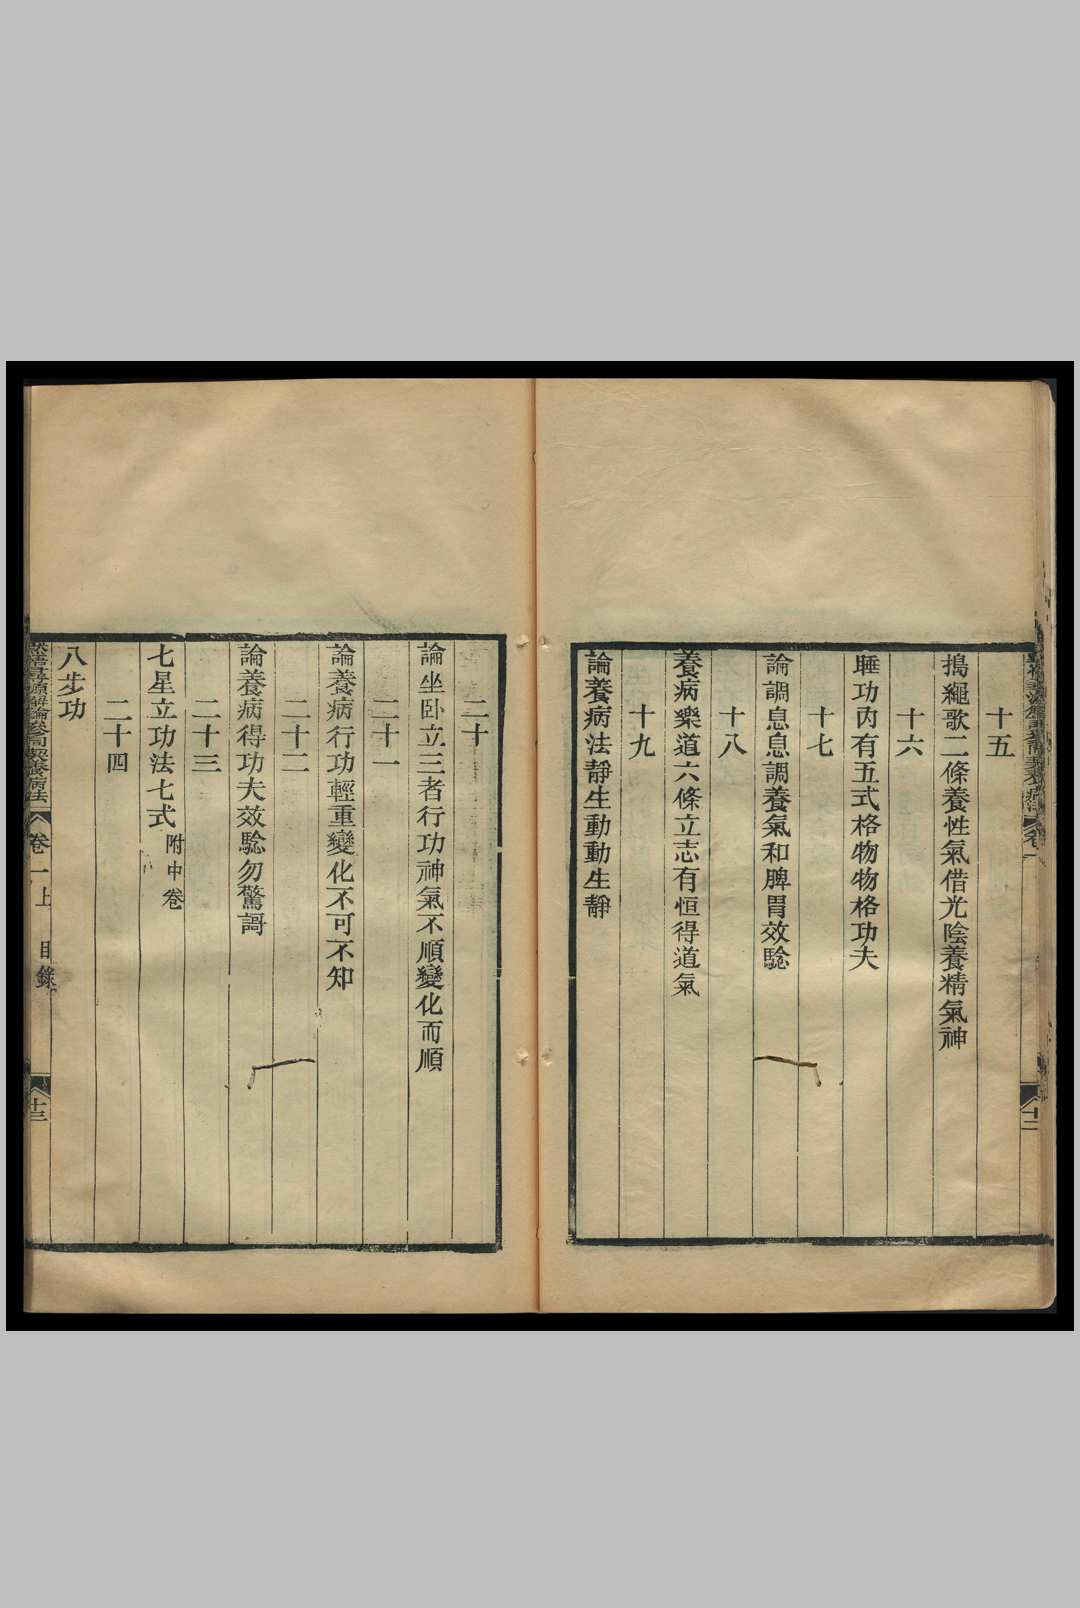 十五
搗繩歌二條養性氣借光陰養精氣神
十六
睡功內有五式格物物格功夫
十七
論調息息調養氣和脾胃效騐
十八
養病樂道六條立志有恒得道氣
十九
論養病法靜生動動生靜
十二
二十
論坐卧立三者行功神氣不順變化而順
二十一
論養病行功輕重變化不可不知
二十二
論養病得功夫效騐勿驚訝
二十三
七星立功法七式 附中卷
二十四
八步功
尋源解論參同契養病法 卷一上 目錄 十三